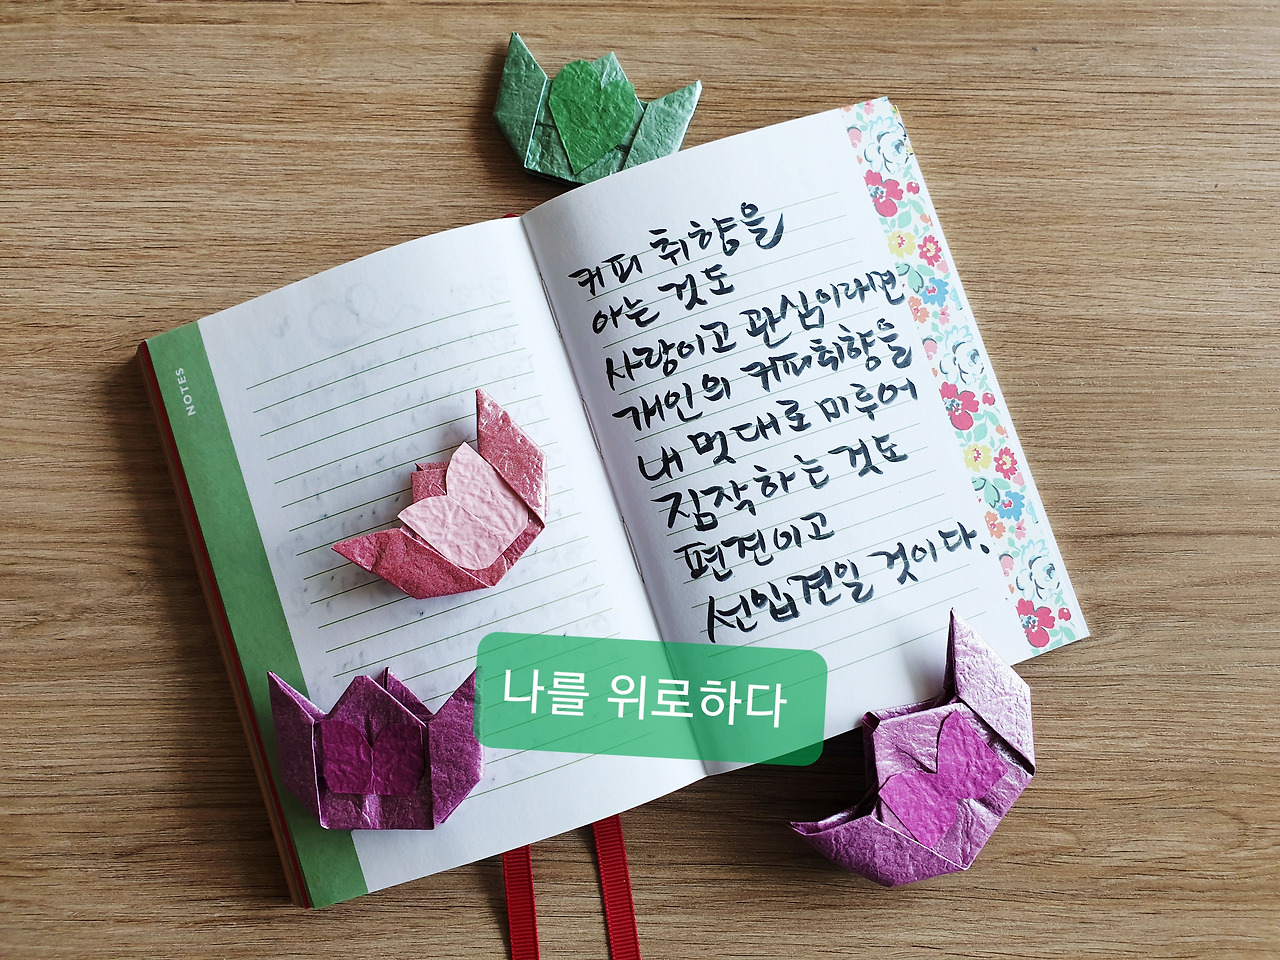 NOTES
커피 취향을
아는 것도
사랑이고 관심이라면
개인의 커피취향을
내 멋대로 미루어
짐작하는 것도
편견이고
선입견일 것이다.
나를 위로하다